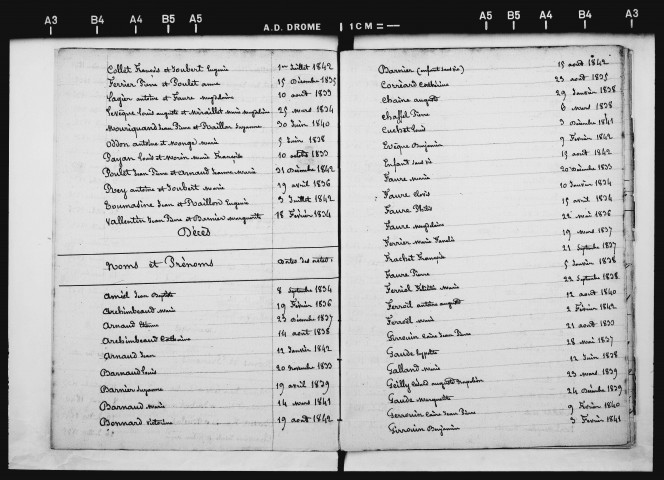 A3 B4 A4 B5 A5 A.D. DROME 1CM A5 B5 A4 B4 A3
Collet François et Joubert Eugénie 1er Juillet 1842
Ferrier Pierre et Poulet anne 15 Décembre 1835
Lagier antoine et Faure magdeleine 10 août 1833
Levêque Louis auguste et Miraillet marie magdeleine 25 mars 1834
Mouriquand Jean Pierre et Raillon Suzanne 30 Juin 1840
Oddon antoine et Monge marie 5 Juin 1838
Payan Louis et Morin marie François 10 octobre 1833
Poulet Jean Pierre et Arnaud Jeanne Marie 31 Décembre 1842
Rey antoine et Joubert marie 19 avril 1836
Toumasine Jean et Raillon Eugénie 3 Juillet 1842
Vallentin Jean Pierre et Barnier marguerite 18 Février 1834
Décès
Noms et Prénoms Dates des actes
Amiel Jean Baptiste 8 Septembre 1834
Archimbeaud marie 19 Février 1836
Arnaud Etienne 23 Décembre 1837
Archimbeaud Catherine 14 août 1838
Arnaud Jean 12 Janvier 1842
Barnaud Louis 20 novembre 1833
Barnier Suzanne 19 avril 1839
Barnaud Marie 14 mars 1841
Bonnard Victorine 19 août 1842
Barnier (enfant sans vie) 15 août 1842
Corréard Catherine 23 août 1835
Chaine auguste 29 Janvier 1838
Chaffel Pierre 6 mars 1838
Cuchet Louis 3 Décembre 1841
Evêque Benjamin 9 Février 1842
Enfant sans vie 15 août 1842
Faure Marie 20 Décembre 1833
Faure Clovis 10 Janvier 1834
Faure 15 avril 1834
Faure magdeleine 22 mai 1836
Ferrier Marie 19 mars 1837
Frachet François 21 Septembre 1837
Faure Pierre 5 Janvier 1838
Ferriol marie 22 Septembre 1838
Ferroil antoine auguste 12 août 1840
Ferroil Marie 2 Février 1842
Girouin Jean Pierre 21 août 1833
Gaude hyppolite 28 Mai 1837
Galland Marie 12 Juin 1838
auguste Napoléon 23 mars 1839
Gaude Marguerite 24 Décembre 1839
Jean Pierre 9 Février 1840
Girouin Benjamin 3 Février 1841